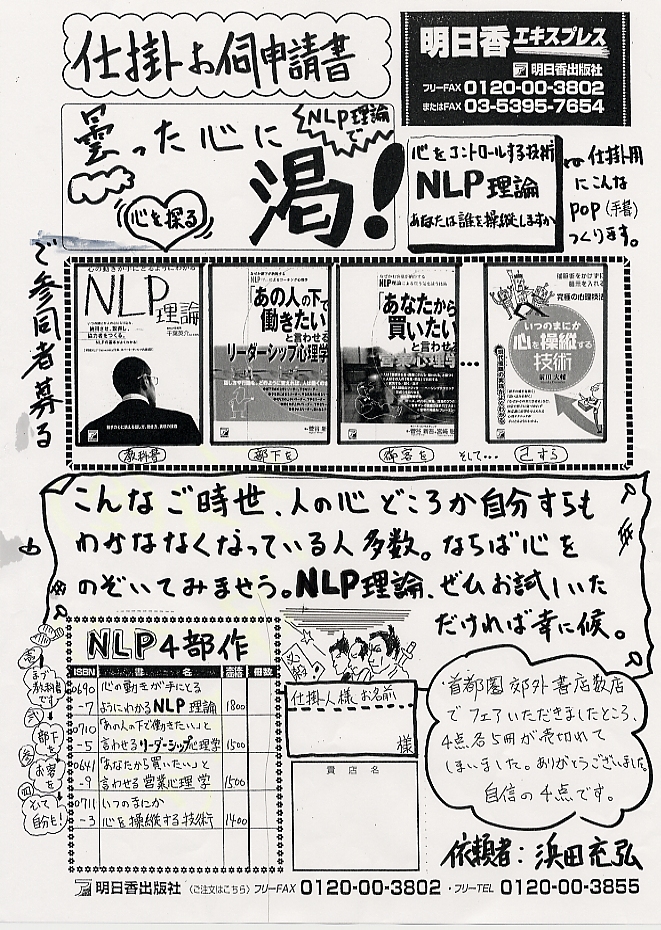 仕掛けお伺申請書
明日香エキスプレス
明日香出版社
フリーFAX 0120-00-3802
またはFAX 03-5395-7654
曇った心に
NLP理論で
渇!
心を探る
心をコントロールする技術
NLP理論
あなたは誰を操縦しますか
仕掛用
にこんな
POP(手書)
つくります。
ご参同者募る
心の動きが手にとるようにわかる
NLP理論
千葉英介
「あの人の下で
働きたい」
と言わせる
リーダーシップ心理学
「あなたから
買いたい」
と言わせる
営業心理学
究極の心理技法
いつのまにか
心を操縦する
技術
教科書
部下を
顧客を
そして…
己すら
こんなご時世、人の心どころか自分すらも
わかななくなっている人多数。ならば心を
のぞいてみませう。NLP理論、ぜひお試しいた
だければ幸に候。
NLP4部作
ISBN 書名 価格 冊数
0690-7 心の動きが手にとるようにわかるNLP理論 1800
0710-5 「あの人の下で働きたい」と言わせるリーダーシップ心理学 1500
0641-9 「あなたから買いたい」と言わせる営業心理学 1500
0711-3 いつのまにか心を操縦する技術 1400
壱
まず
教科書
です
弐
部下
を
参
お客
を
四
そして
自分も!
仕掛人様お名前
様
貴店名
首都圏郊外書店数店
でフェアいただきましたところ、
4点各5冊が売切れて
しまいました。ありがとうございました。
自信の4点です。
依頼者:浜田充弘
明日香出版社 〈ご注文はこちら〉 フリーFAX 0120-00-3802 ・フリーTEL 0120-00-3855